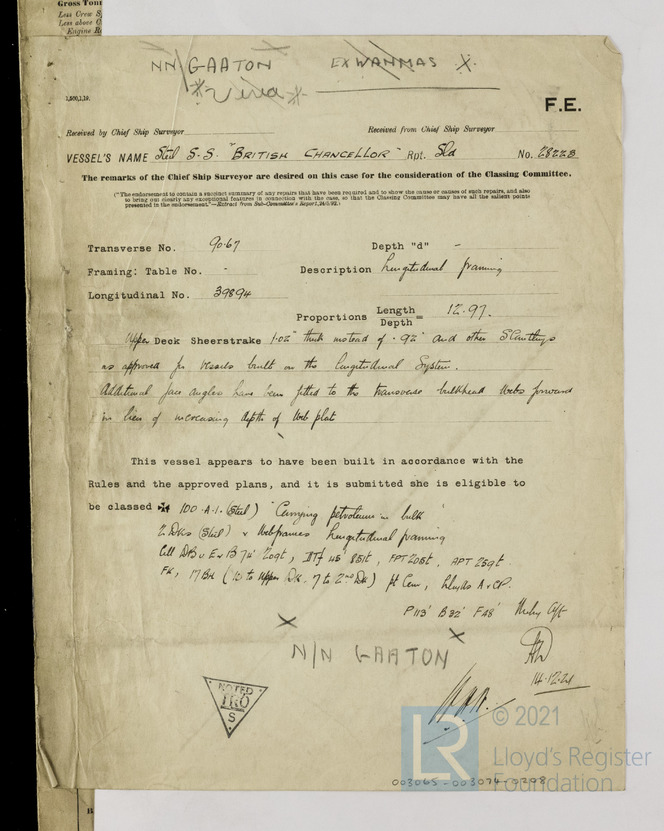 Gross Ton
Less Crew S
Less above C
Engine R
NN GAATON EX WANMAS X
1,500,1,19.
F.E.
Received by Chief Ship Surveyor
Received from Chief Ship Surveyor
VESSEL'S NAME Steel S.S. "BRITISH CHANCELLOR" Rpt. Sld No. 28228
The remarks of the Chief Ship Surveyor are desired on this case for the consideration of the Classing Committee.
("The endorsement to contain a succinct summary of any repairs that have been required and to show the cause or causes of such repairs, and also
to bring out clearly any exceptional features in connection with the case, so that the Classing Committee may have all the salient points
presented in the endorsement."—Extract from Sub-Committee's Report,
Transverse No. 90.67 Depth "d" -
Framing: Table No. - Description Longitudinal framing
Longitudinal No. 39894
Proportions Length/Depth = 12.97.
Upper Deck Sheerstrake 1.02" thick instead of .92" and other Scantlings
as approved for vessels built on the longitudinal System.
Additional face angles have been fitted to the transverse bulkhead webs forward
in lieu of increasing depth of web plat
This vessel appears to have been built in accordance with the
Rules and the approved plans, and it is submitted she is eligible to
be classed ✠ 100.A.1. (Steel) "Carrying petroleum in bulk"
2 Dks (Steel) & Webframes Longitudinal framing
Cell DB u E & B 74' 209t, DTf 45' 851t, FPT 205t, APT 259t.
FK, 17 BH (10 to Upper Dk, 7 to 2nd Dk) pt Cem, Lloyds A & CP.
P 113' B 32' F 48' Mchy Aft
X X
N/N GAATON
14.12.21
NOTED
IRO
S
LR
© 2021
Lloyd's Register
Foundation
003065-003074-0208
B